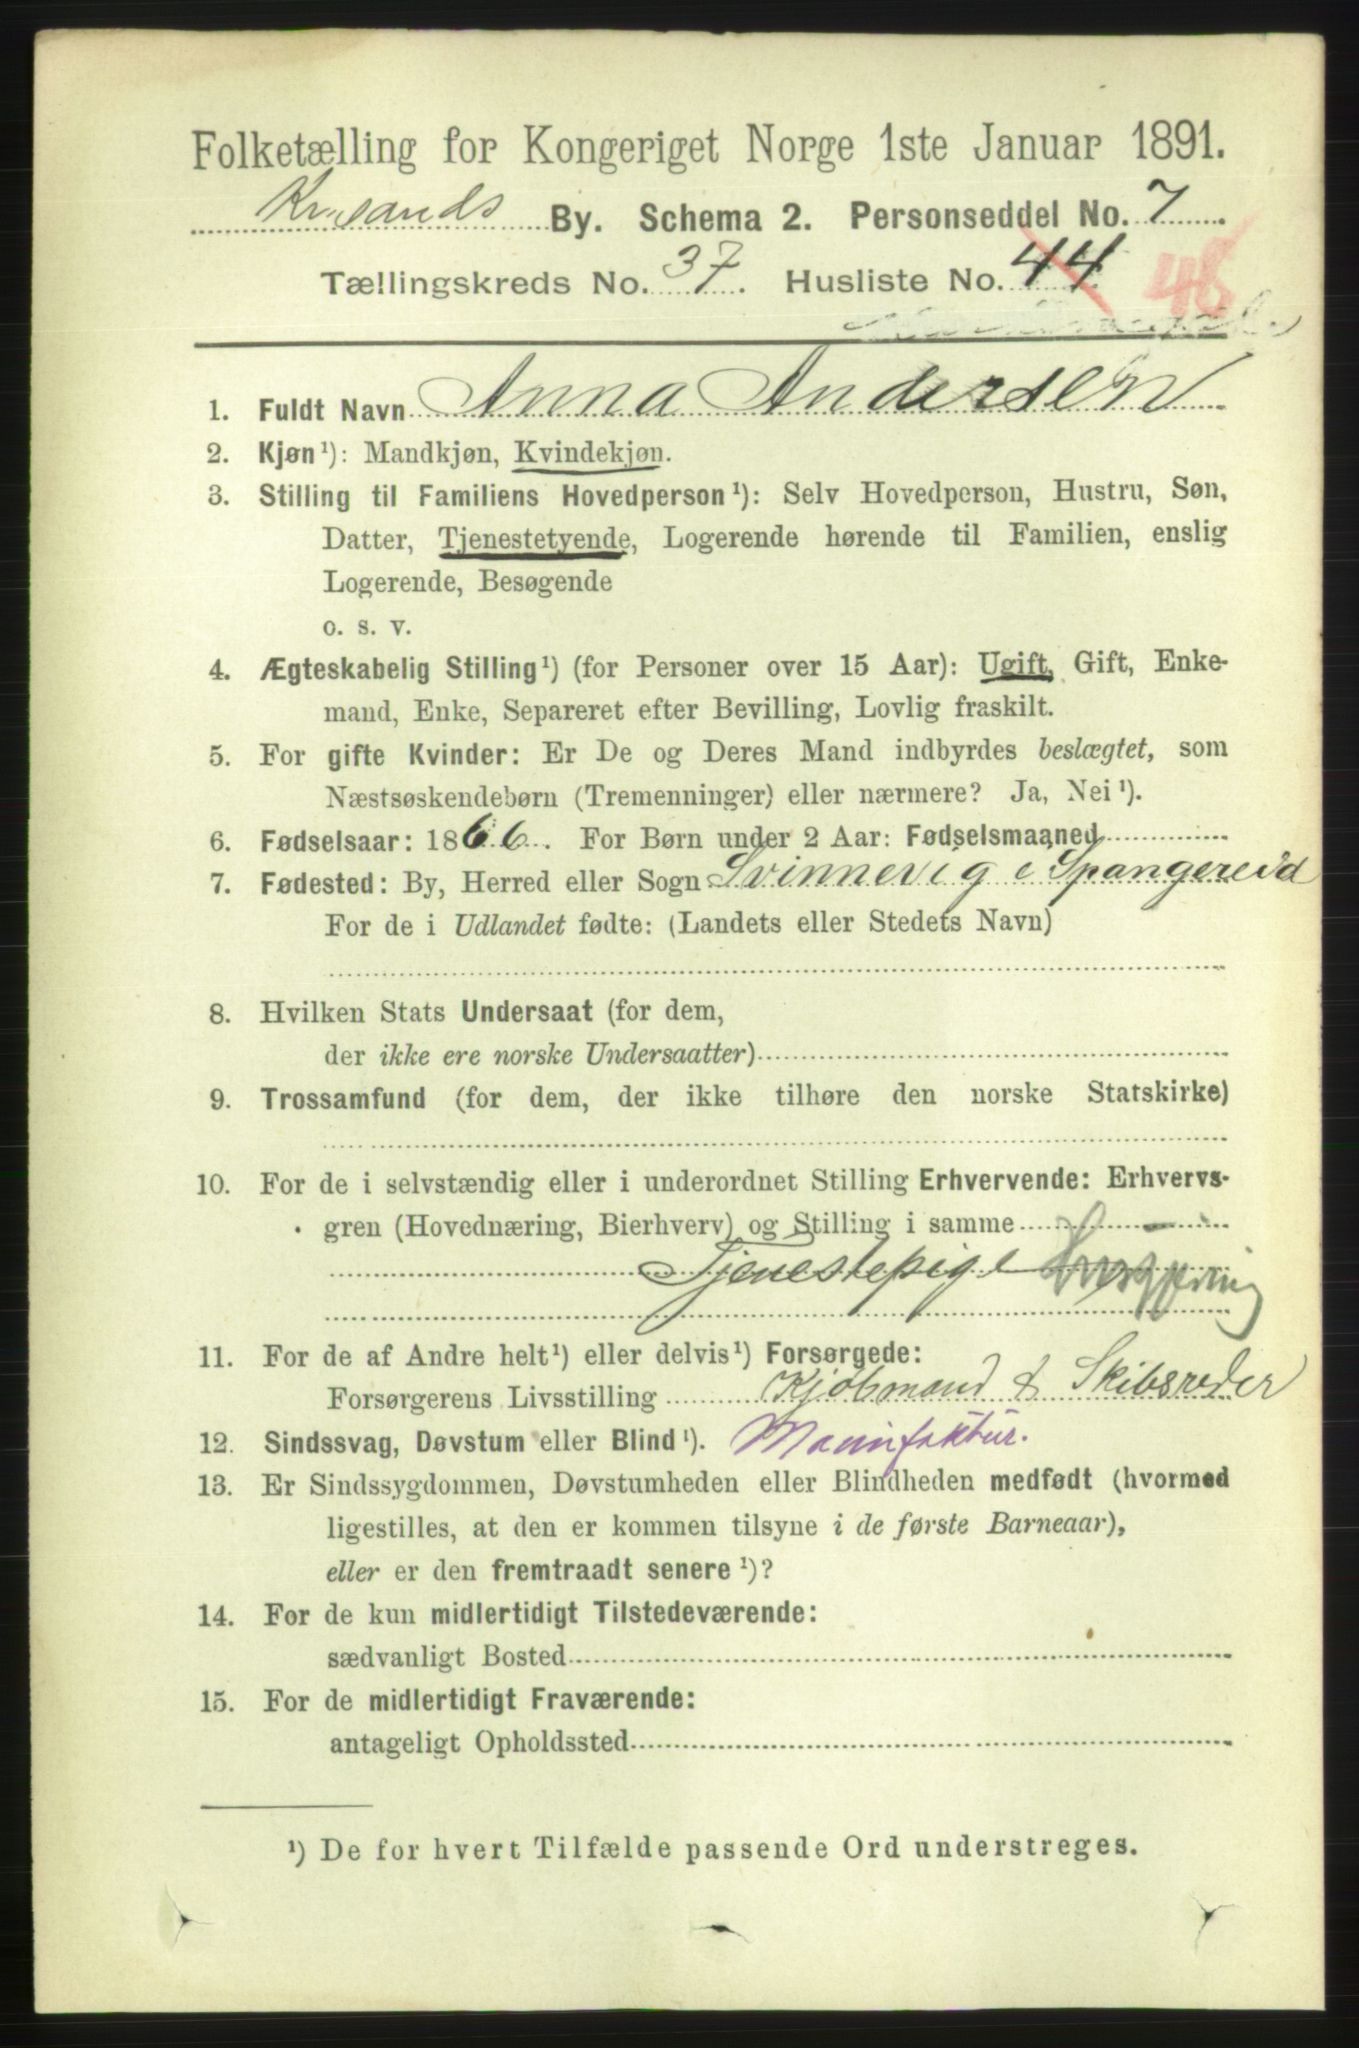 Folketælling for Kongeriget Norge 1ste Januar 1891.
Krsands By. Schema 2. Personseddel No. 7
Tællingskreds No. 37. Husliste No. 44 48
1. Fuldt Navn Anna Andersen
2. Kjøn¹): Mandkjøn, Kvindekjøn.
3. Stilling til Familiens Hovedperson¹): Selv Hovedperson, Hustru, Søn,
Datter, Tjenestetyende, Logerende hørende til Familien, enslig
Logerende, Besøgende
o. s. v.
4. Ægteskabelig Stilling¹) (for Personer over 15 Aar): Ugift, Gift, Enke-
mand, Enke, Separeret efter Bevilling, Lovlig fraskilt.
5. For gifte Kvinder: Er De og Deres Mand indbyrdes beslægtet, som
Næstsøskendebørn (Tremenninger) eller nærmere? Ja, Nei¹).
6. Fødselsaar: 1866. For Børn under 2 Aar: Fødselsmaaned
7. Fødested: By, Herred eller Sogn Svinnevig i Spangereid
For de i Udlandet fødte: (Landets eller Stedets Navn)
8. Hvilken Stats Undersaat (for dem,
der ikke ere norske Undersaatter)
9. Trossamfund (for dem, der ikke tilhøre den norske Statskirke)
10. For de i selvstændig eller i underordnet Stilling Erhvervende: Erhvervs-
gren (Hovednæring, Bierhverv) og Stilling i samme
Tjenestepige
11. For de af Andre helt¹) eller delvis¹) Forsørgede:
Forsørgerens Livsstilling Kjøbmand & Skibsreder
12. Sindssvag, Døvstum eller Blind¹). Manufaktur.
13. Er Sindssygdommen, Døvstumheden eller Blindheden medfødt (hvormed
ligestilles, at den er kommen tilsyne i de første Barneaar),
eller er den fremtraadt senere¹)?
14. For de kun midlertidigt Tilstedeværende:
sædvanligt Bosted
15. For de midlertidigt Fraværende:
antageligt Opholdssted
¹) De for hvert Tilfælde passende Ord understreges.